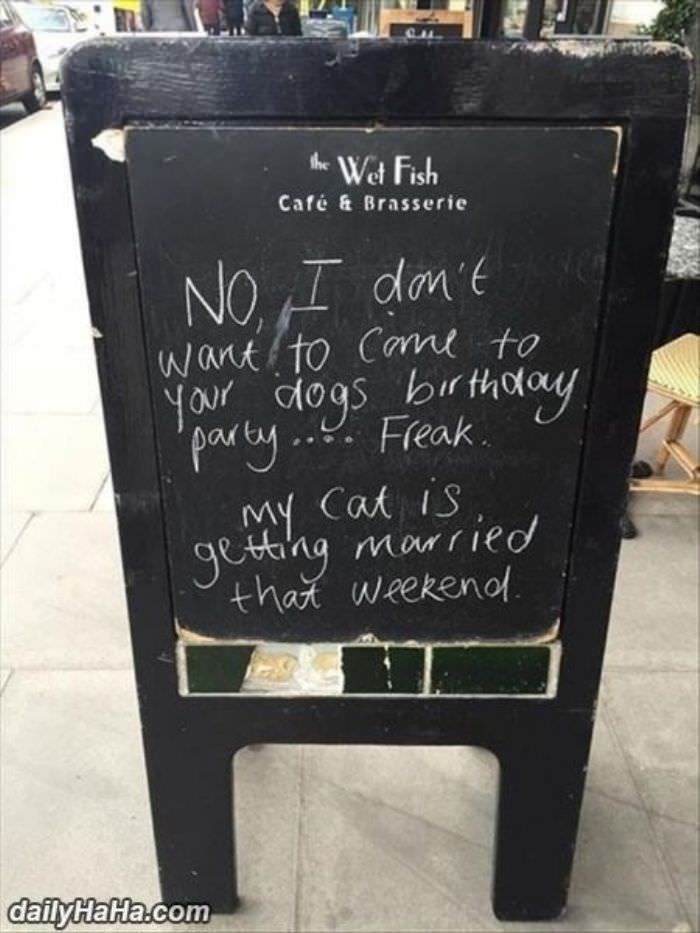 the Wet Fish
Café & Brasserie
NO, I don't
want to come to
your dogs birthday
party.... Freak.
My cat is
getting married
that weekend.
dailyHaHa.com